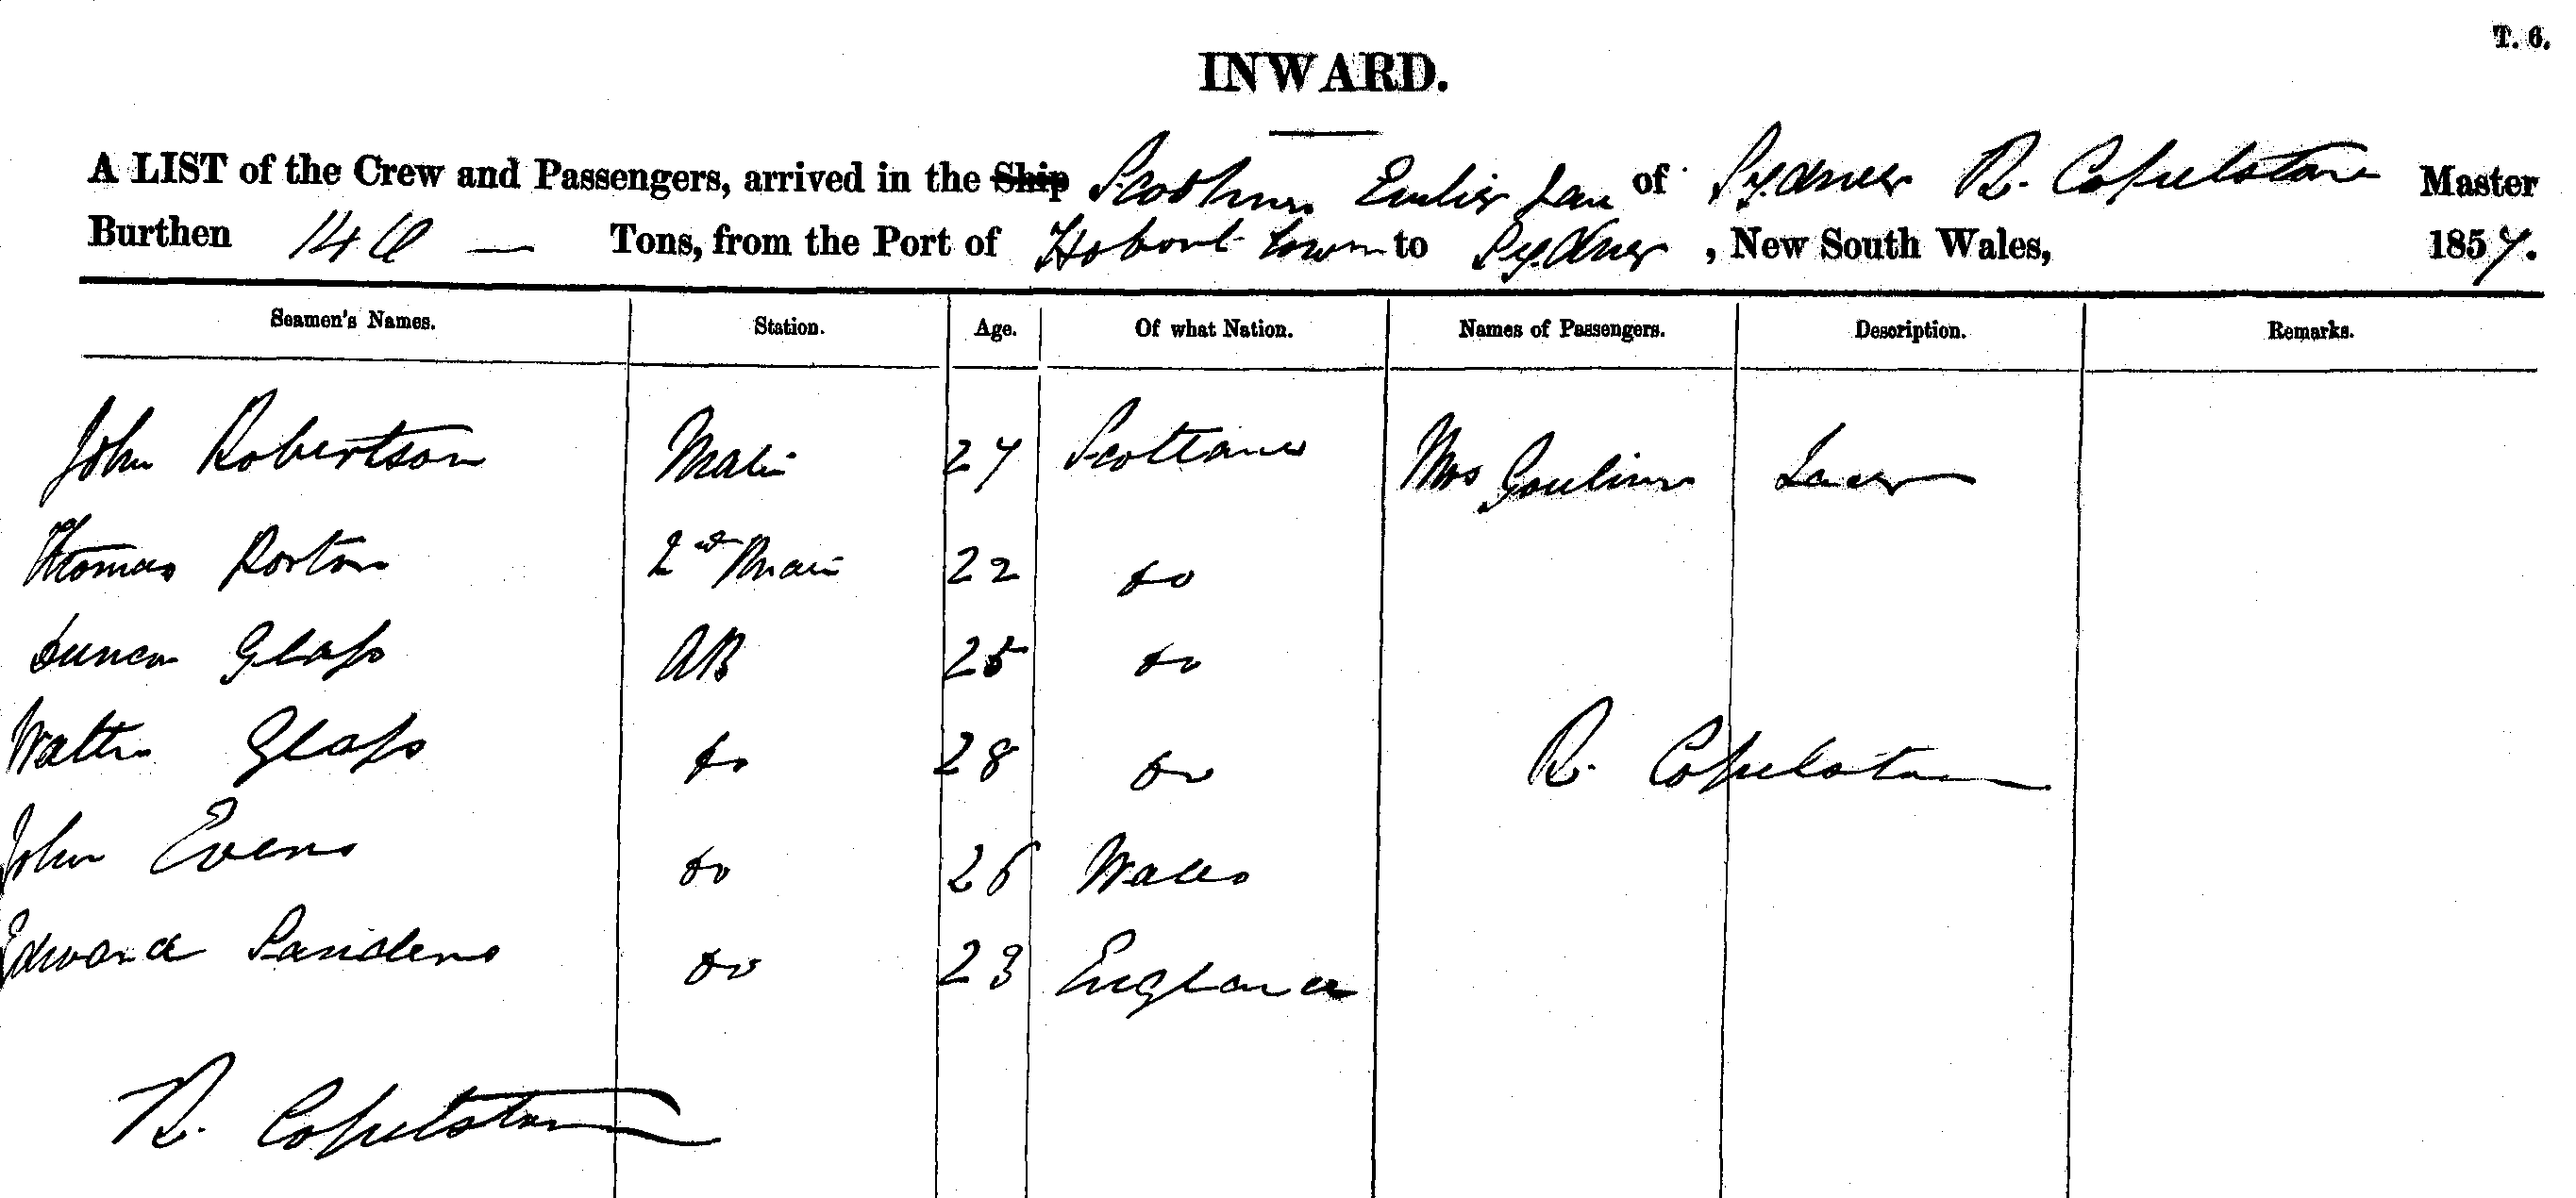 T. 6.
INWARD.
A LIST of the Crew and Passengers, arrived in the Ship Schooner Emily Jane of Sydney R. Copelstone Master
Burthen 140 — Tons, from the Port of Hobart Town to Sydney, New South Wales, 1857.
Seamen's Names. Station. Age. Of what Nation. Names of Passengers. Description. Remarks.
John Robertson Mate 27 Scotland Mrs Lady
Thomas Rorton 2nd Mate 22 do
Duncan Glass AB 25 do
Walter Glass do 28 do R. Copelstone
John Evens do 26 Wales
Edward Sanders do 23 England
R. Copelstone